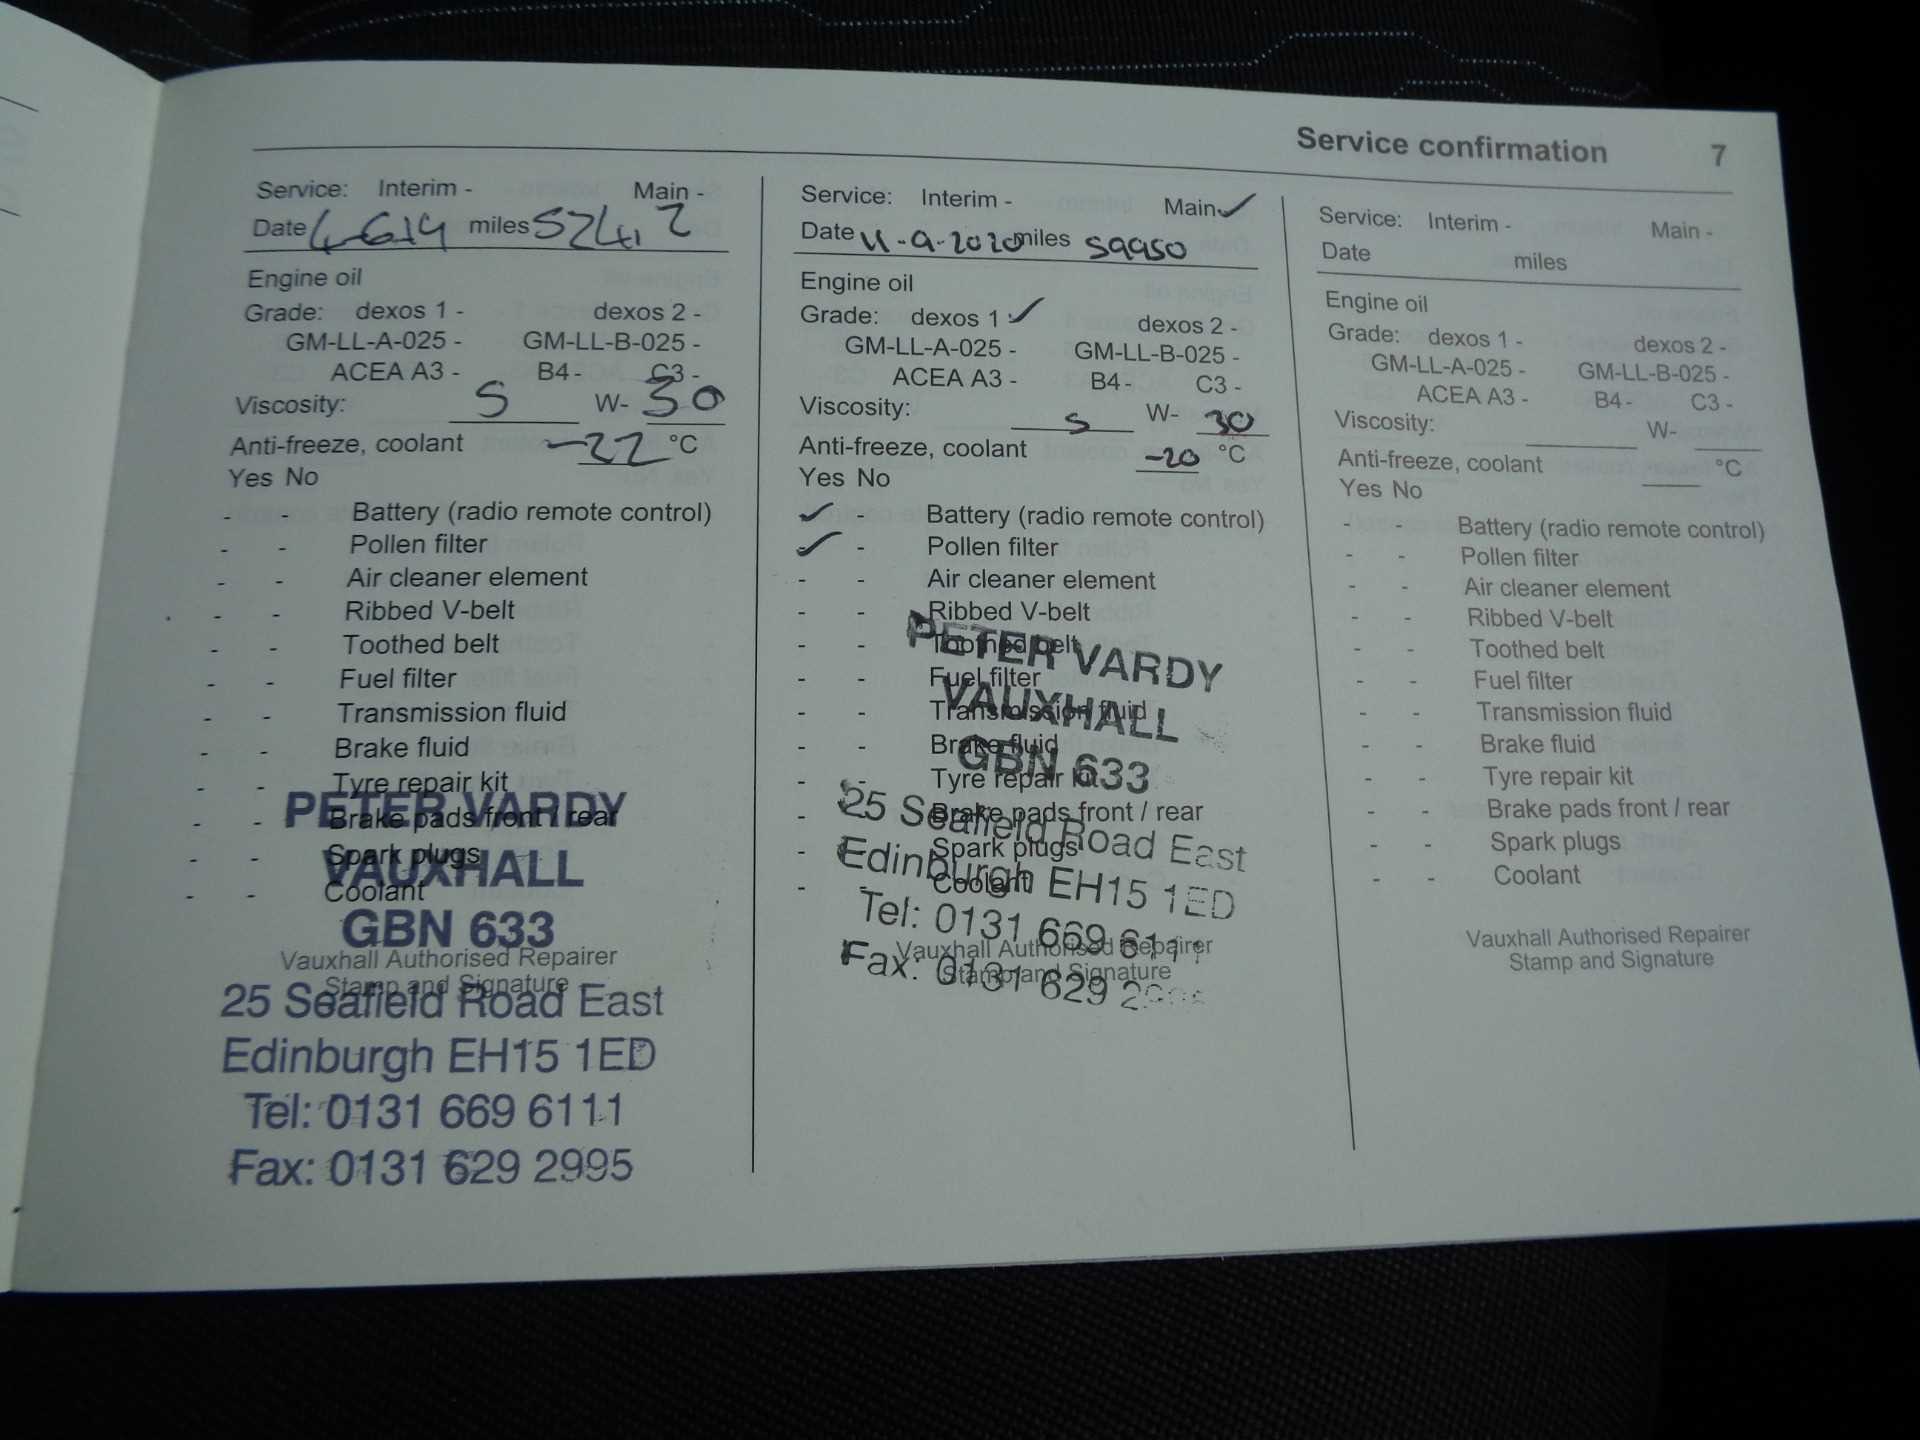 Service confirmation 7
Service: Interim - Main -
Date 4-6-19 miles 52412
Engine oil
Grade: dexos 1 - dexos 2 -
GM-LL-A-025 - GM-LL-B-025 -
ACEA A3 - B4 - C3 -
Viscosity: 5 W- 30
Anti-freeze, coolant -22 °C
Yes No
- - Battery (radio remote control)
- - Pollen filter
- - Air cleaner element
- - Ribbed V-belt
- - Toothed belt
- - Fuel filter
- - Transmission fluid
- - Brake fluid
- - Tyre repair kit
- - Brake pads front / rear
- - Spark plugs
- - Coolant
Vauxhall Authorised Repairer
Stamp and Signature
PETER VARDY
VAUXHALL
GBN 633
25 Seafield Road East
Edinburgh EH15 1ED
Tel: 0131 669 6111
Fax: 0131 629 2995
Service: Interim - Main ✓
Date 11-9-2020 miles 59950
Engine oil
Grade: dexos 1 ✓ dexos 2 -
GM-LL-A-025 - GM-LL-B-025 -
ACEA A3 - B4 - C3 -
Viscosity: 5 W- 30
Anti-freeze, coolant -20 °C
Yes No
✓ - Battery (radio remote control)
✓ - Pollen filter
- - Air cleaner element
- - Ribbed V-belt
- - Toothed belt
- - Fuel filter
- - Transmission fluid
- - Brake fluid
- - Tyre repair kit
- - Brake pads front / rear
- - Spark plugs
- - Coolant
Vauxhall Authorised Repairer
Stamp and Signature
PETER VARDY
VAUXHALL
GBN 633
25 Seafield Road East
Edinburgh EH15 1ED
Tel: 0131 669 6111
Fax: 0131 629
Service: Interim - Main -
Date miles
Engine oil
Grade: dexos 1 - dexos 2 -
GM-LL-A-025 - GM-LL-B-025 -
ACEA A3 - B4 - C3 -
Viscosity: W-
Anti-freeze, coolant °C
Yes No
- - Battery (radio remote control)
- - Pollen filter
- - Air cleaner element
- - Ribbed V-belt
- - Toothed belt
- - Fuel filter
- - Transmission fluid
- - Brake fluid
- - Tyre repair kit
- - Brake pads front / rear
- - Spark plugs
- - Coolant
Vauxhall Authorised Repairer
Stamp and Signature